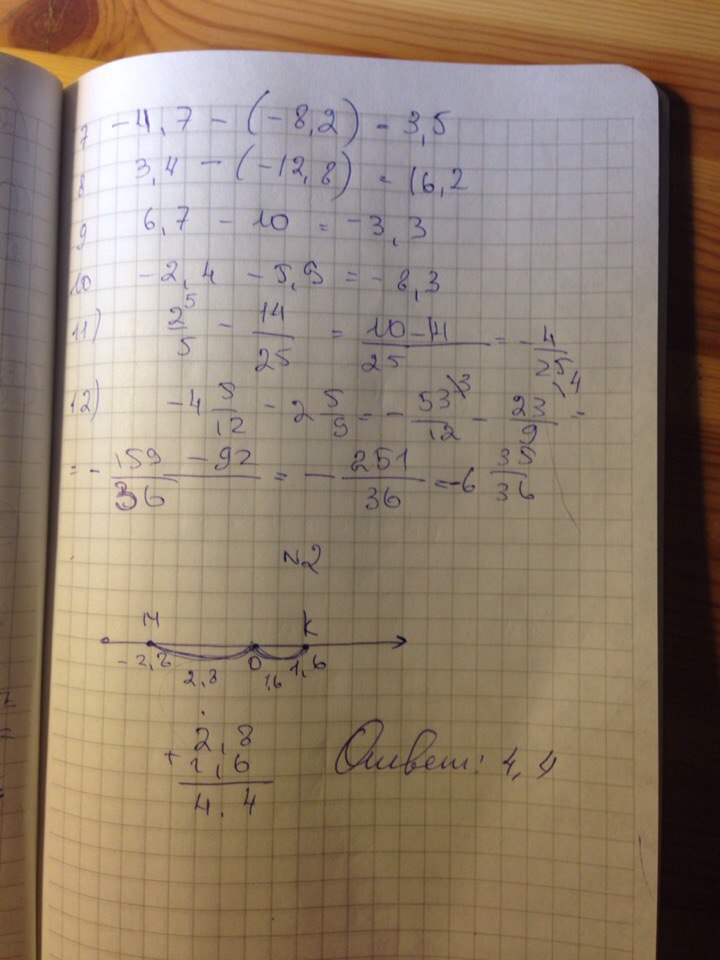 7 -4,7 - (-8,2) = 3,5
8 3,4 - (-12,8) = 16,2
9 6,7 - 10 = -3,3
10 -2,4 - 5,9 = -8,3
11) 2/5 ⁵ - 14/25 = 10-14/25 = -4/25
12) -4 5/12 - 2 5/9 = - 53/12 ³ - 23/9 ⁴ =
= - 159 - 92/36 = - 251/36 = -6 35/36
№2
M K
-2,8 0 1,6
2,8 1,6
2,8
+ 1,6
4,4
Ответ: 4,4